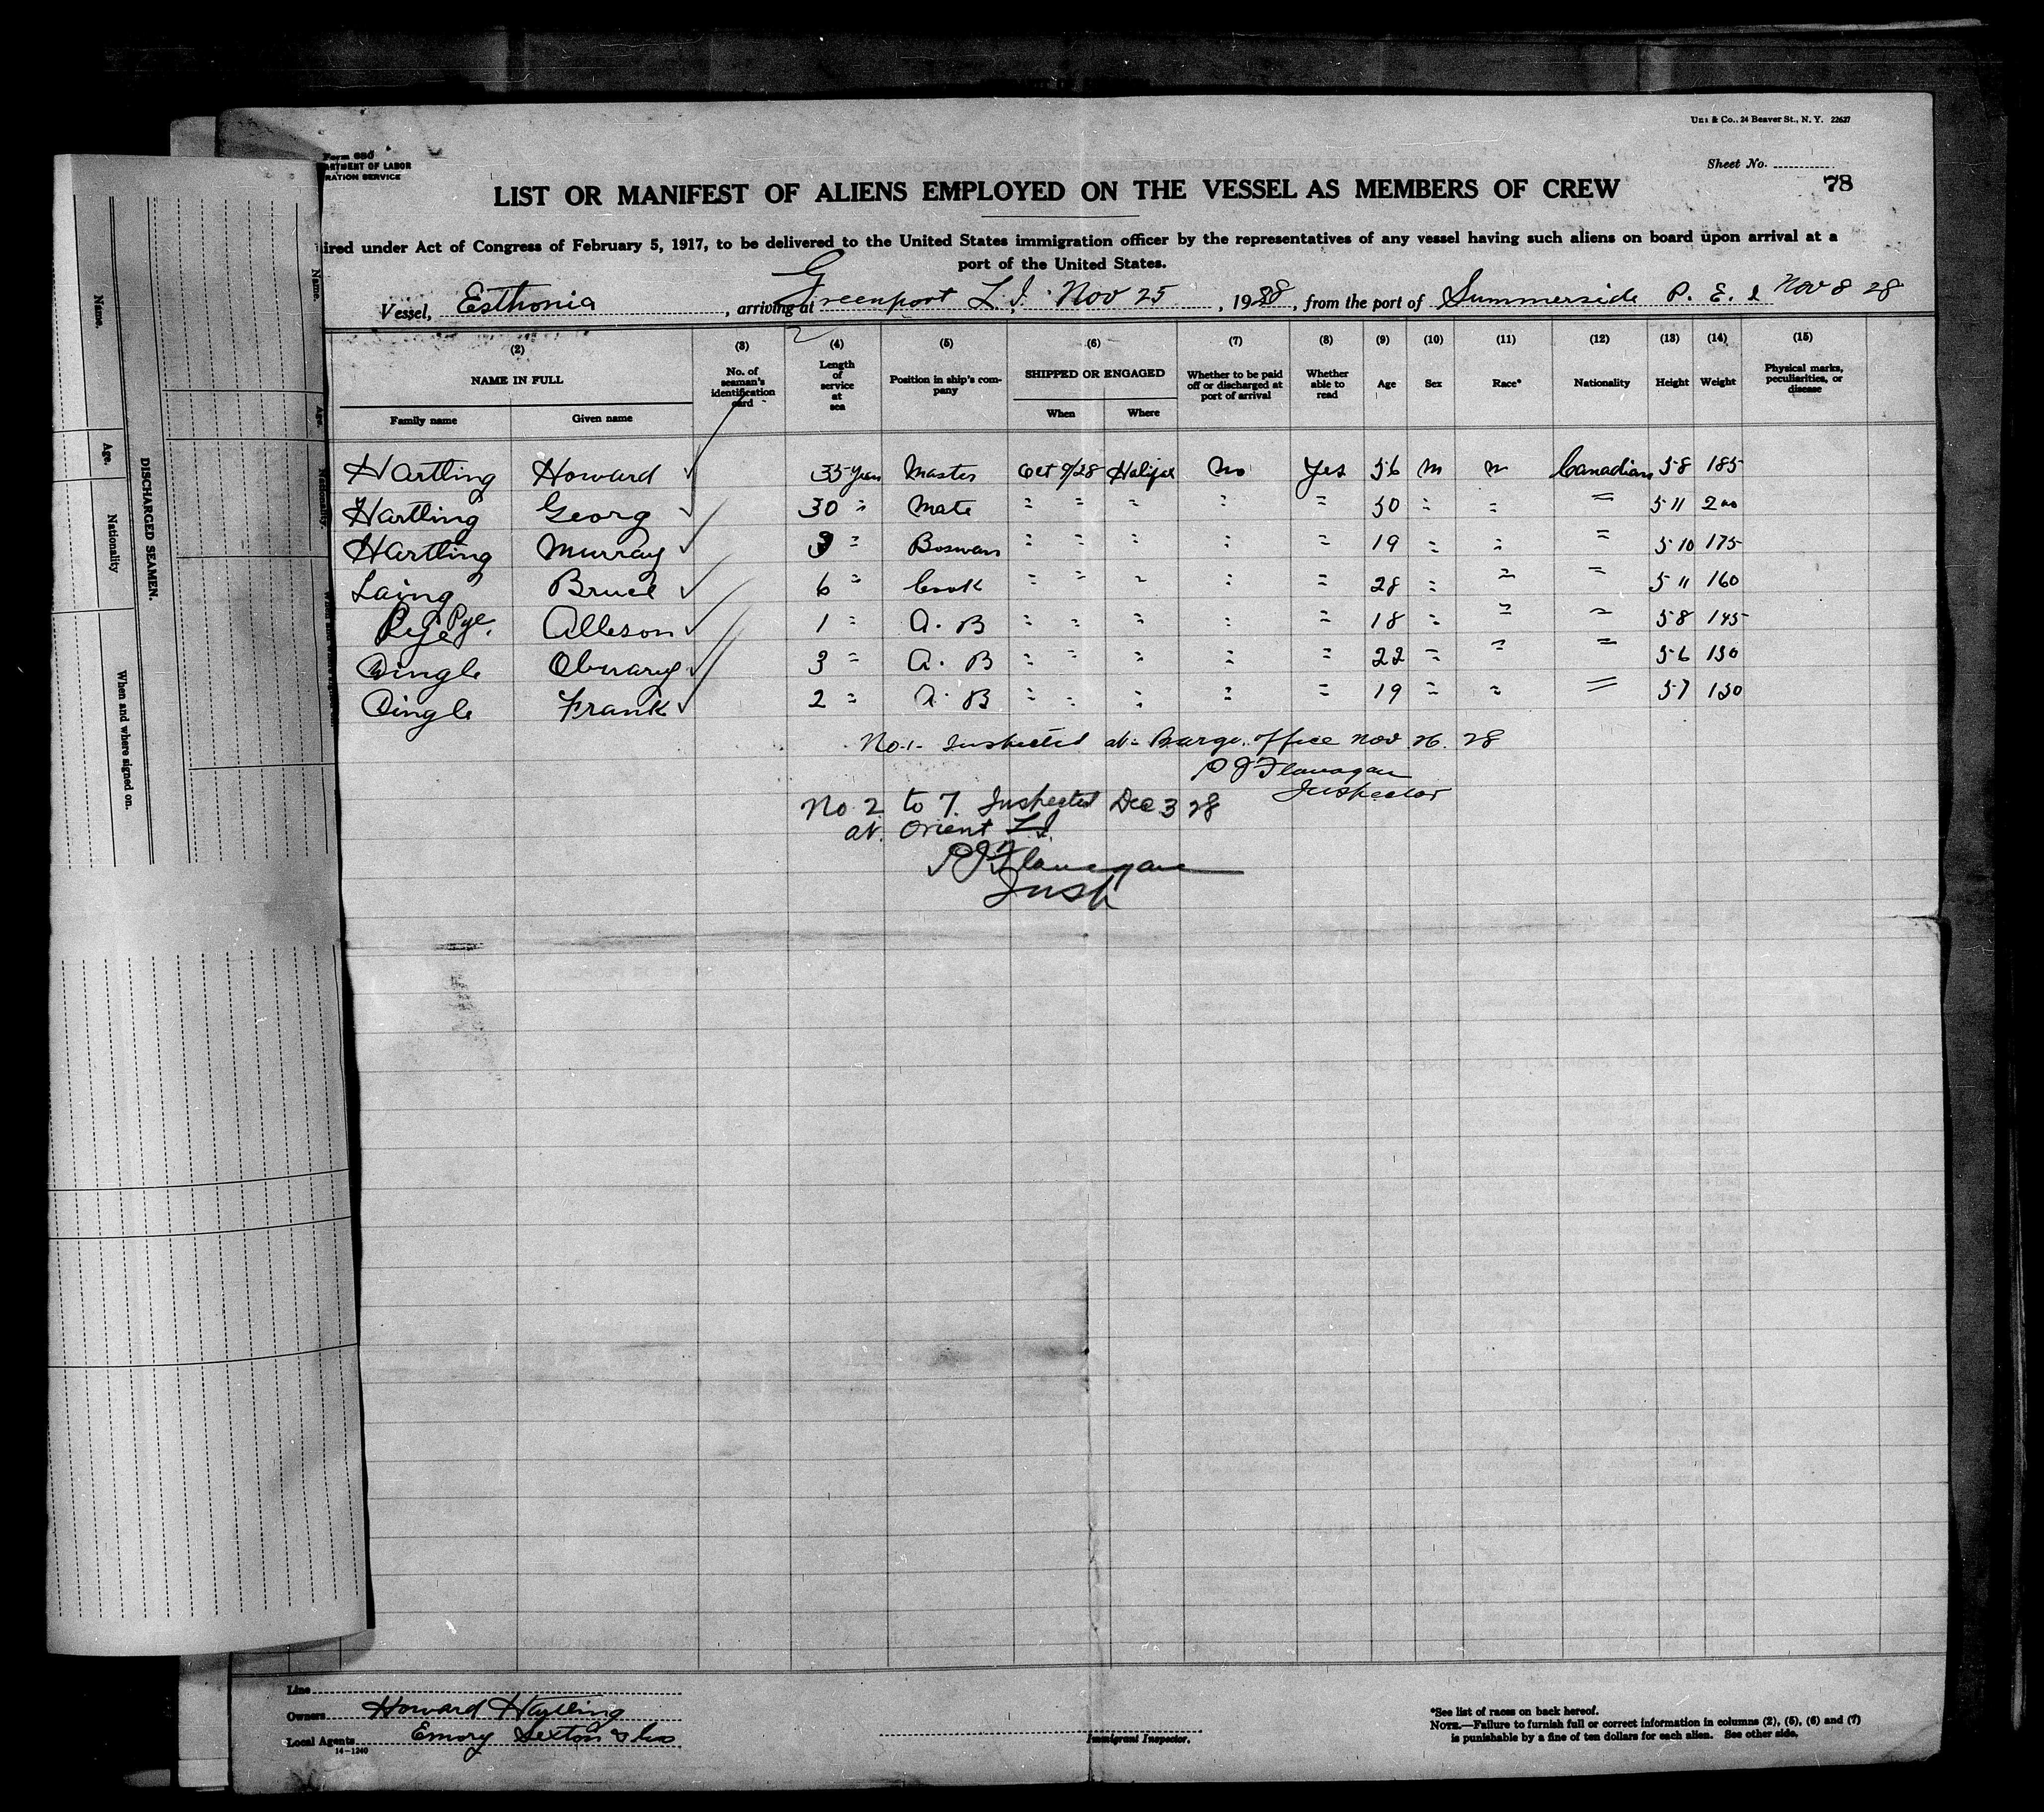 Uns & Co., 24 Beaver St., N. Y. 22627
Form 680
ARTMENT OF LABOR
RATION SERVICE
Sheet No.
78
LIST OR MANIFEST OF ALIENS EMPLOYED ON THE VESSEL AS MEMBERS OF CREW
ired under Act of Congress of February 5, 1917, to be delivered to the United States immigration officer by the representatives of any vessel having such aliens on board upon arrival at a
port of the United States.
Vessel, Esthonia, arriving at Greenport L. I. Nov 25, 1928, from the port of Summerside P. E. I Nov 8 28
(2) (3) (4) (5) (6) (7) (8) (9) (10) (11) (12) (13) (14) (15)
NAME IN FULL
Family name Given name
No. of seaman's identification card
Length of service at sea
Position in ship's company
SHIPPED OR ENGAGED
When Where
Whether to be paid off or discharged at port of arrival
Whether able to read
Age Sex Race* Nationality Height Weight
Physical marks, peculiarities, or disease
Hartling Howard 35 years Master Oct 9/28 Halifax No Yes 56 m Canadian 5 8 185
Hartling Georg 30 " Mate " " " " " 50 " " " 5 11 200
Hartling Murray 3 " Boswan " " " " " 19 " " " 5 10 175
Laing Bruce 6 " Cook " " " " " 28 " " " 5 11 160
Pye Pye Alleson 1 " A. B " " " " " 18 " " " 5 8 145
Dingle 3 " A. B " " " " " 22 " " " 5 6 150
Dingle Frank 2 " A. B " " " " " 19 " " " 5 7 150
No. 1 - Inspected at Barge Office Nov 26. 28
P J Flanagan
Inspector
No 2 to 7. Inspected Dec 3 28
at Orient L.I.
P J Flanagan
Insp
Name.
Age.
Nationality
When and where signed on.
DISCHARGED SEAMEN.
Name.
Age.
Nationality.
Line
Owners Howard Hartling
Local Agents Emory Sexton & Co
14-1240
Immigrant Inspector.
*See list of races on back hereof.
NOTE.—Failure to furnish full or correct information in columns (2), (5), (6) and (7)
is punishable by a fine of ten dollars for each alien. See other side.